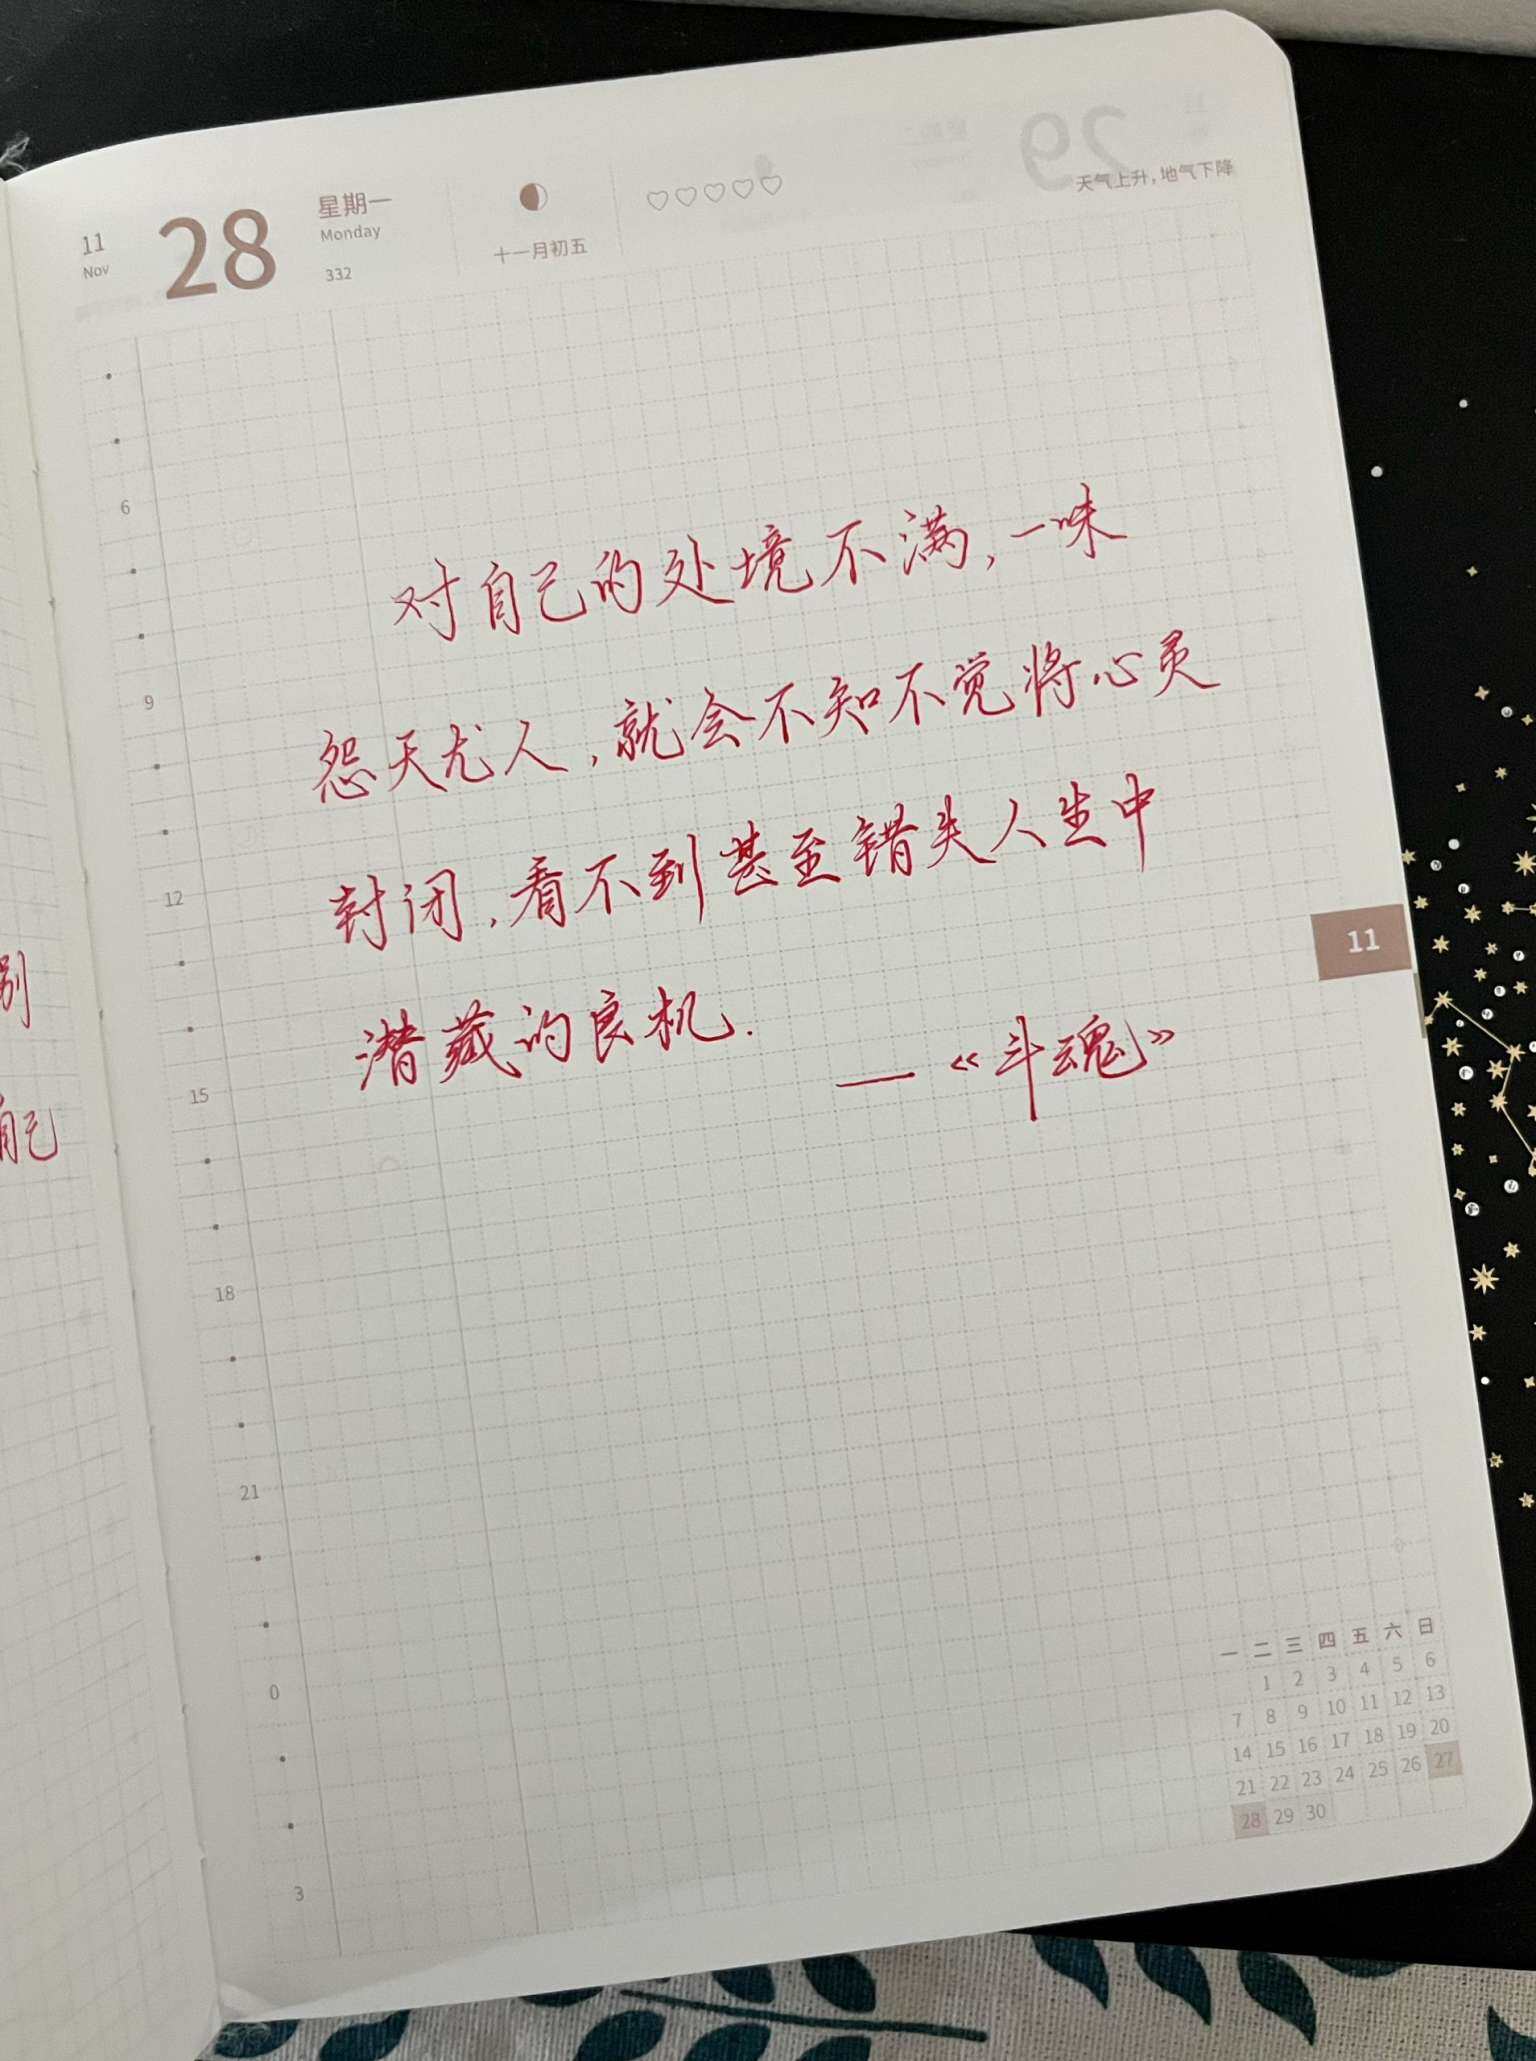 11
Nov
28
星期一
Monday
332
十一月初五
天气上升，地气下降
29
对自己的处境不满，一味
怨天尤人，就会不知不觉将心灵
封闭，看不到甚至错失人生中
潜藏的良机.
—《斗魂》
别
自己
6
9
12
15
18
21
0
3
11
一 二 三 四 五 六 日
1 2 3 4 5 6
7 8 9 10 11 12 13
14 15 16 17 18 19 20
21 22 23 24 25 26 27
28 29 30